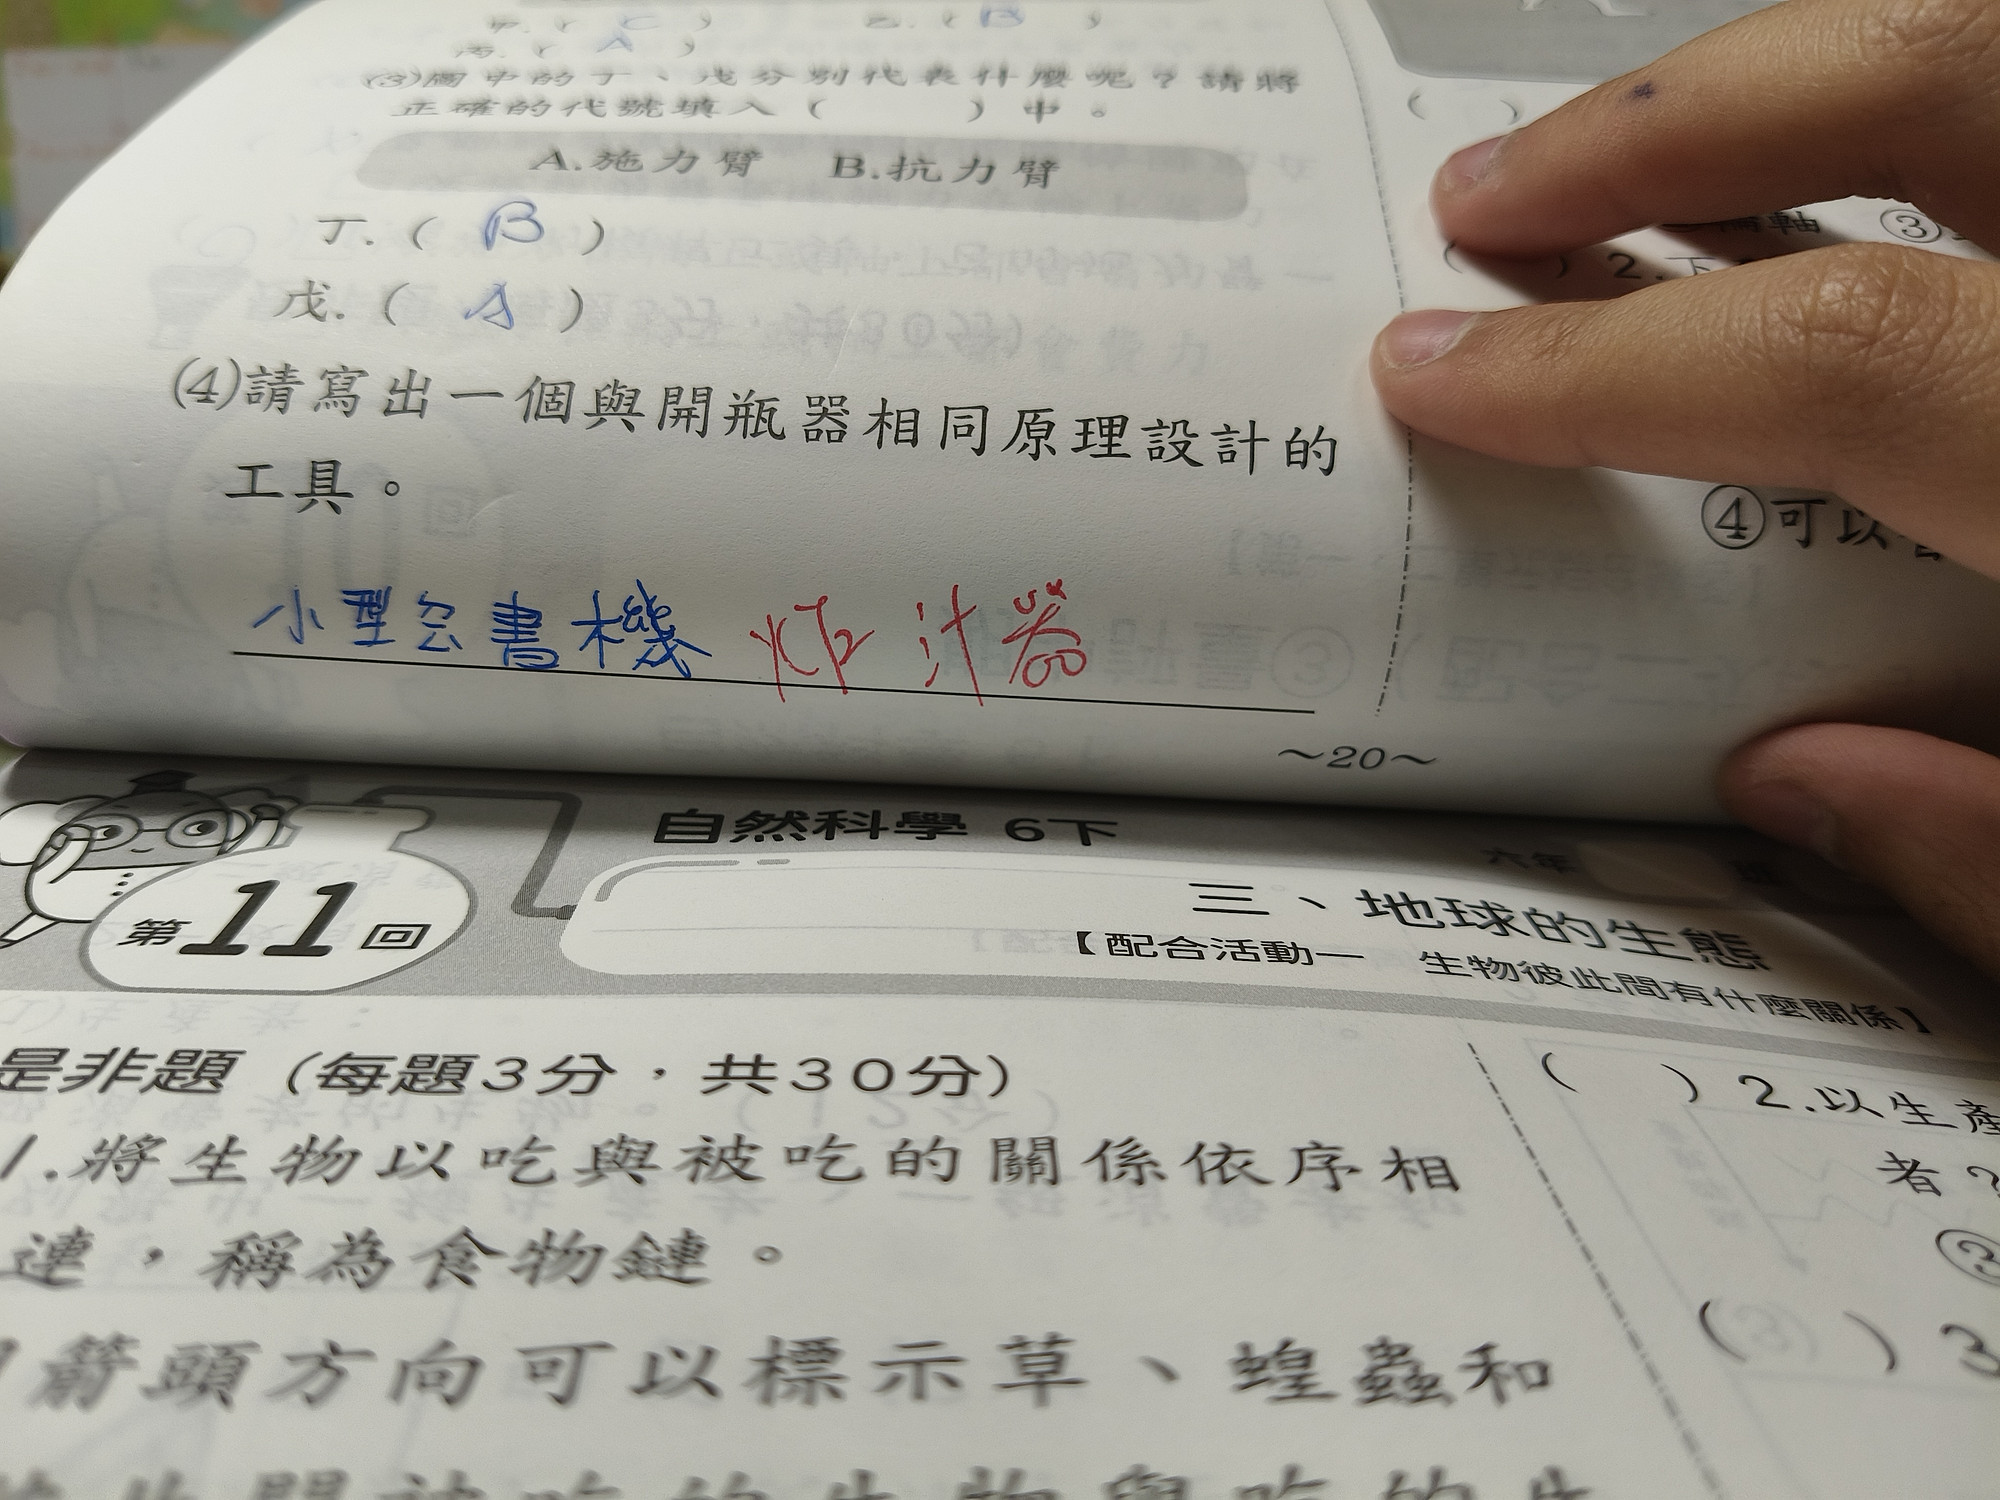 甲.( C ) 乙.( B )
丙.( A )
(3)圖中的丁、戊分別代表什麼呢？請將
正確的代號填入( )中。
A.施力臂 B.抗力臂
丁.( B )
戊.( A )
(4)請寫出一個與開瓶器相同原理設計的
工具。
小型釘書機 炸汁器
~20~
( )
輪軸 ③
( ) 2.下
④可以
自然科學 6下
六年 班
第11回
三、地球的生態
【配合活動一 生物彼此間有什麼關係】
是非題（每題3分，共30分）
1.將生物以吃與被吃的關係依序相
連，稱為食物鏈。
箭頭方向可以標示草、蝗蟲和
( ) 2.以生產
者？
③
( 3 ) 3